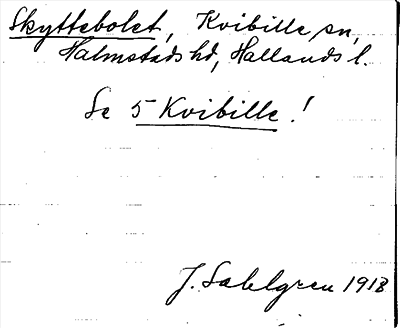 Skyttebolet, Kvibille sn,
Halmstads hd, Hallands l.
Se 5 Kvibille!
J. Sahlgren 1918